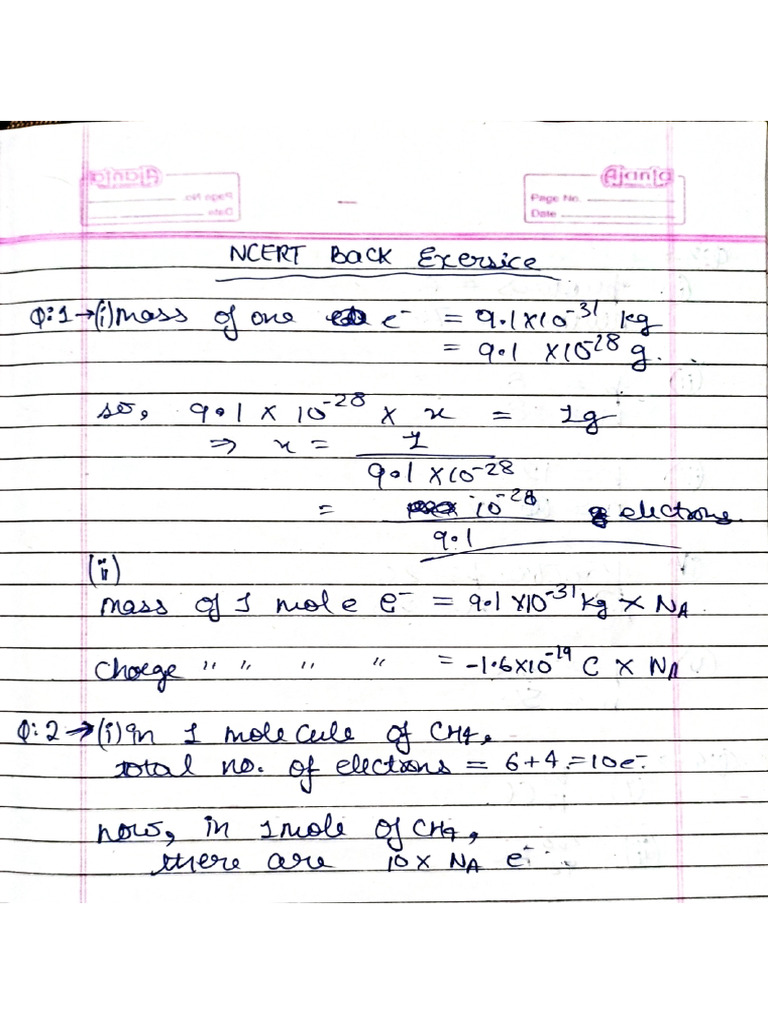 Ajanta
Ajanta
Page No.
Date
Page No.
Date
NCERT Back Exersice
Q:1→(i) mass of one e⁻ = 9.1×10⁻³¹ kg
= 9.1 ×10⁻²⁸ g.
so, 9.1 × 10⁻²⁸ × x = 1g
⇒ x = 1
9.1 ×10⁻²⁸
= 10⁻²⁸ electrons.
9.1
(ii)
mass of 1 mole e⁻ = 9.1 ×10⁻³¹ kg × NA
Charge " " " " = -1.6×10⁻¹⁹ C × NA
Q:2→(i) in 1 molecule of CH4,
total no. of electrons = 6+4=10e⁻
now, in 1 mole of CH4,
there are 10× NA e⁻.